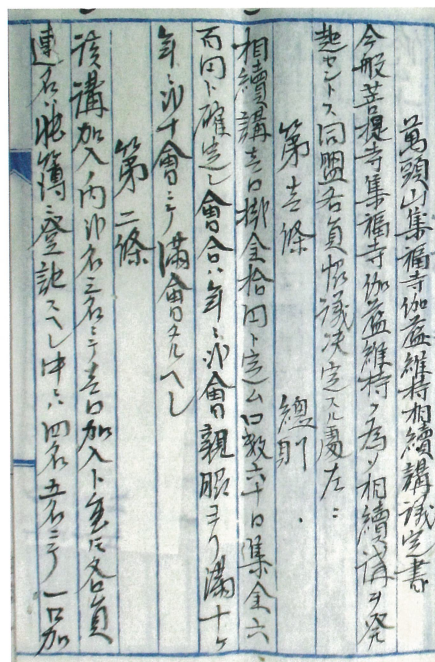 萬頭山集福寺伽藍維持相續講議定書
今般菩提寺集福寺伽藍維持ノ為メ相續講ヲ発
起セントス同盟各員協議決定スル處左ニ
第壱條　總則
相續講壱口掛金拾円ト定ム口数六十口集金六
百円ト確定シ會合ハ年ニ弐會親睱ヨリ満十ヶ
年ニ弐十會ニテ満會タルヘシ
第二條
該講加入ノ内弐名三名ニテ壱口加入ト雖モ各員
連名帳簿ニ登記スヘシ中ニハ四名五名ニテ一口加